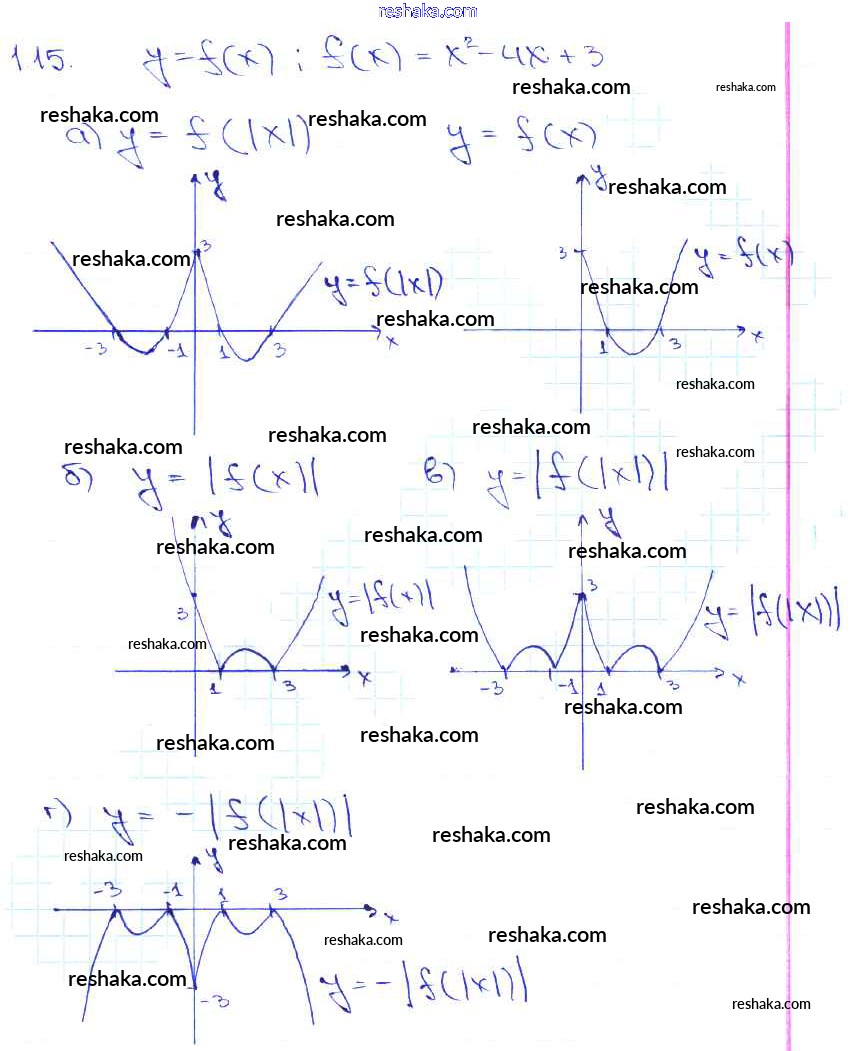 reshaka.com
115. y = f(x) ; f(x) = x² - 4x + 3
reshaka.com reshaka.com
reshaka.com reshaka.com
а) y = f(|x|) y = f(x)
y y
reshaka.com
reshaka.com
3 3
reshaka.com y = f(x)
y = f(|x|) reshaka.com
reshaka.com
-3 -1 1 3 x 1 3 x
reshaka.com
reshaka.com reshaka.com reshaka.com
reshaka.com
б) y = |f(x)| в) y = |f(|x|)|
y y
reshaka.com reshaka.com
reshaka.com reshaka.com
3 y = |f(x)| 3 y = |f(|x|)|
reshaka.com reshaka.com
1 3 x -3 -1 1 3 x
reshaka.com
reshaka.com reshaka.com
г) y = - |f(|x|)|
reshaka.com
reshaka.com reshaka.com
reshaka.com y
-3 -1 1 3 x
reshaka.com
reshaka.com reshaka.com
reshaka.com
-3 y = - |f(|x|)|
reshaka.com